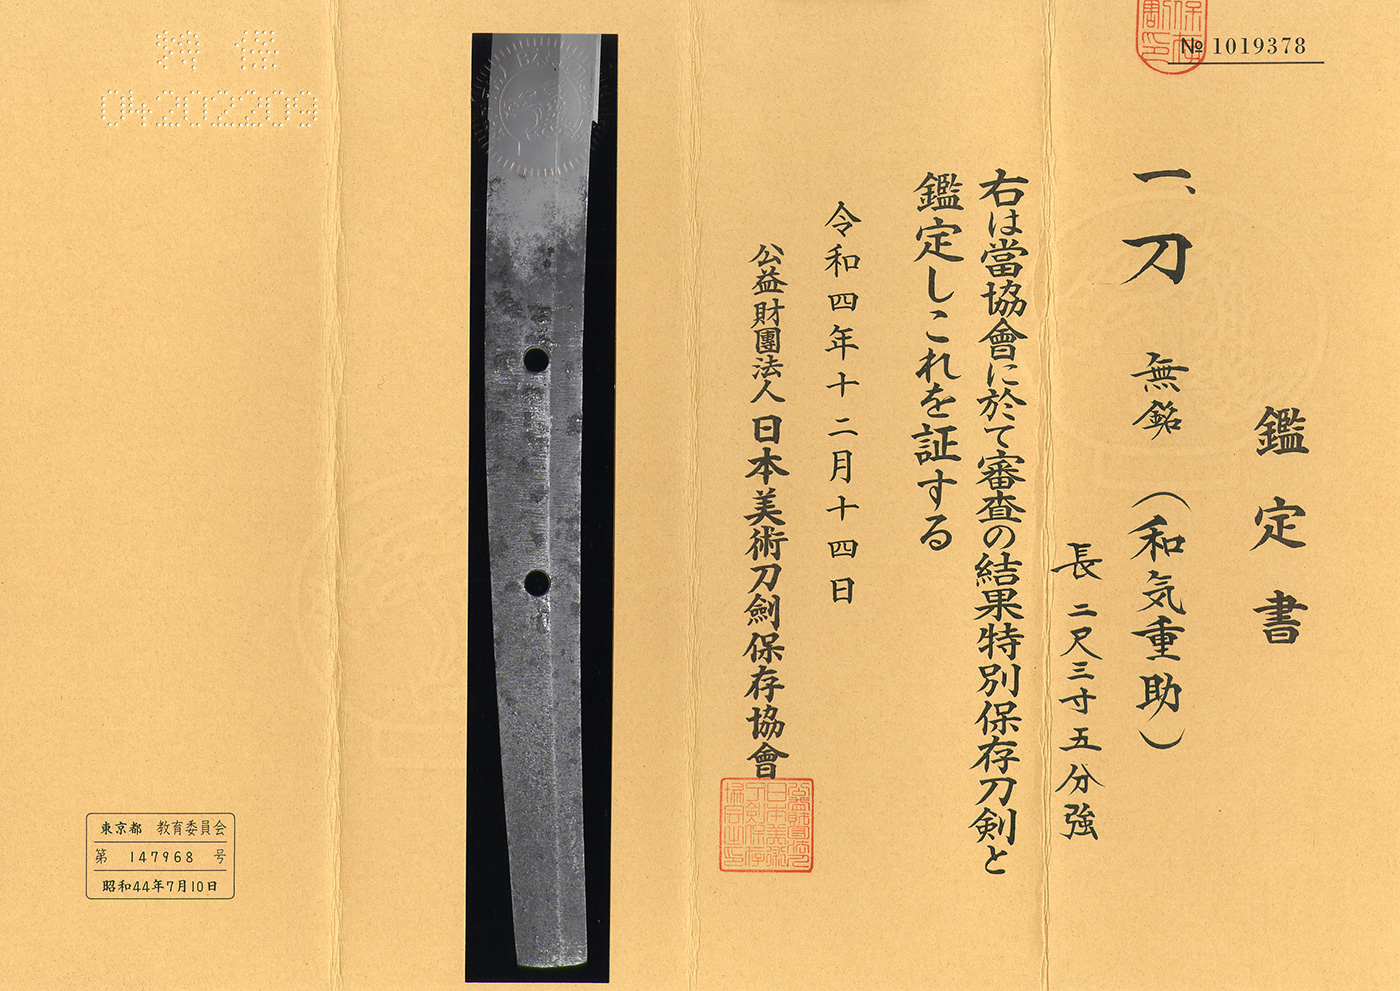 № 1019378
鑑定書
一、刀 無銘（和気重助）
長二尺三寸五分強
右は當協會に於て審査の結果特別保存刀剣と
鑑定しこれを証する
令和四年十二月十四日
公益財團法人日本美術刀劍保存協會
特保
04202209
東京都 教育委員会
第 147968 号
昭和44年7月10日